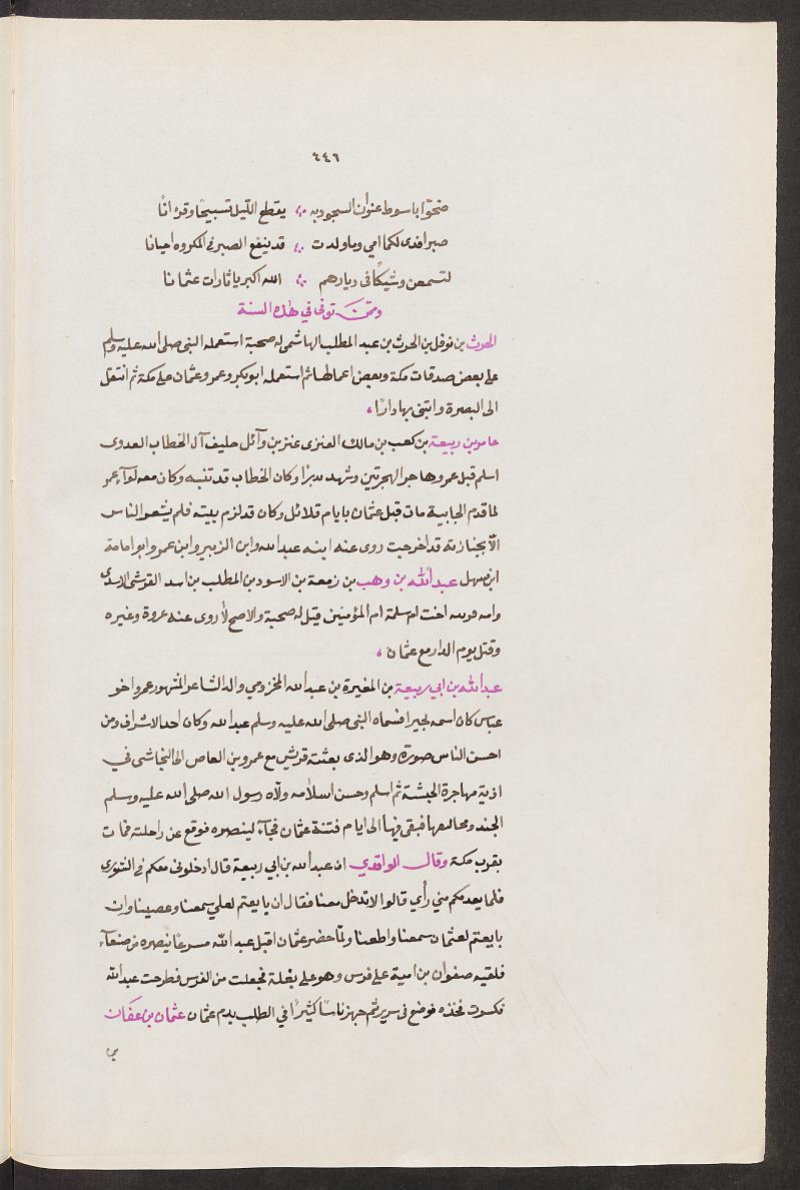 ٤٤٦
ضحّوا باسوط عنوان السجود به ؞ يقطع الليل تسبيحًا وقرءانًا
صبرا فدى لكما امي وما ولدت ؞ قد ينفع الصبر في المكروه احيانا
لتسمعن وشيكًا في ديارهم ؞ الله اكبر يا ثارات عثمانا
وممّن توفى في هذه السنة
الحرث بن نوفل بن الحرث بن عبد المطلب الهاشمي له صحبة استعمله النبي صلى الله عليه وسلم
على بعض صدقات مكة وبعض اعمالها ثم استعمله ابو بكر وعمر وعثمان على مكة ثم انتقل
الى البصرة وابتنى بها دارًا،
عامر بن ربيعة بن كعب بن مالك العنزى عنز بن وآئل حليف آل الخطاب العدوى
اسلم قبل عمر وهاجر الهجرتين وشهد بدرًا وكان الخطاب قد تبنيه وكان معه لوآء عمر
لما قدم الجابية مات قبل عثمان بايام قلائل وكان قد لزم بيته فلم يشعر الناس
الّا بجنازته قد اخرجت روى عنه ابنه عبد الله وابن الزبير وابن عمر وابو امامة
ابن سهل عبد الله بن وهب بن زمعة بن الاسود بن المطلب بن اسد القرشى الاسدى
وامه قريبه اخت ام سلمة ام المؤمنين قيل له صحبة والاصح لا روى عنه عروة وغيره
وقتل يوم الدار مع عثمان،
عبد الله بن ابي ربيعة بن المغيرة بن عبد الله المخزومي والد الشاعر المشهور عمر واخو
عياش كان اسمه بجيرا فسماه النبى صلى الله عليه وسلم عبد الله وكان احد الاشراف ومن
احسن الناس صورة وهو الذى بعثته قريش مع عمرو بن العاص الى النجاشى في
اذية مهاجرة الحبشة ثم اسلم وحسن اسلامه ولّاه رسول الله صلى الله عليه وسلم
الجند ومخاليفها فبقى فيها الى ايام فتنة عثمان فجآء لينصره فوقع عن راحلته فمات
بقرب مكة وقال الواقدي ان عبد الله بن ابي ربيعة قال ادخلونى معكم في الشورى
فلما يعدمكم مني رأي قالوا لا تدخل معنا فقال ان بايعتم لعلي سمعنا وعصينا وان
بايعتم لعثمان سمعنا واطعنا ولمّا حضر عثمان اقبل عبد الله مسرعًا ينصره من صنعآء
فلقيه صفوان بن امية على فرس وهو على بغلة فجعلت من الفرس فطرحت عبد الله
فكسرت فخذه فوضع في سرير ثم جهز ناسًا كثيرًا في الطلب بدم عثمان عثمان بن عفان